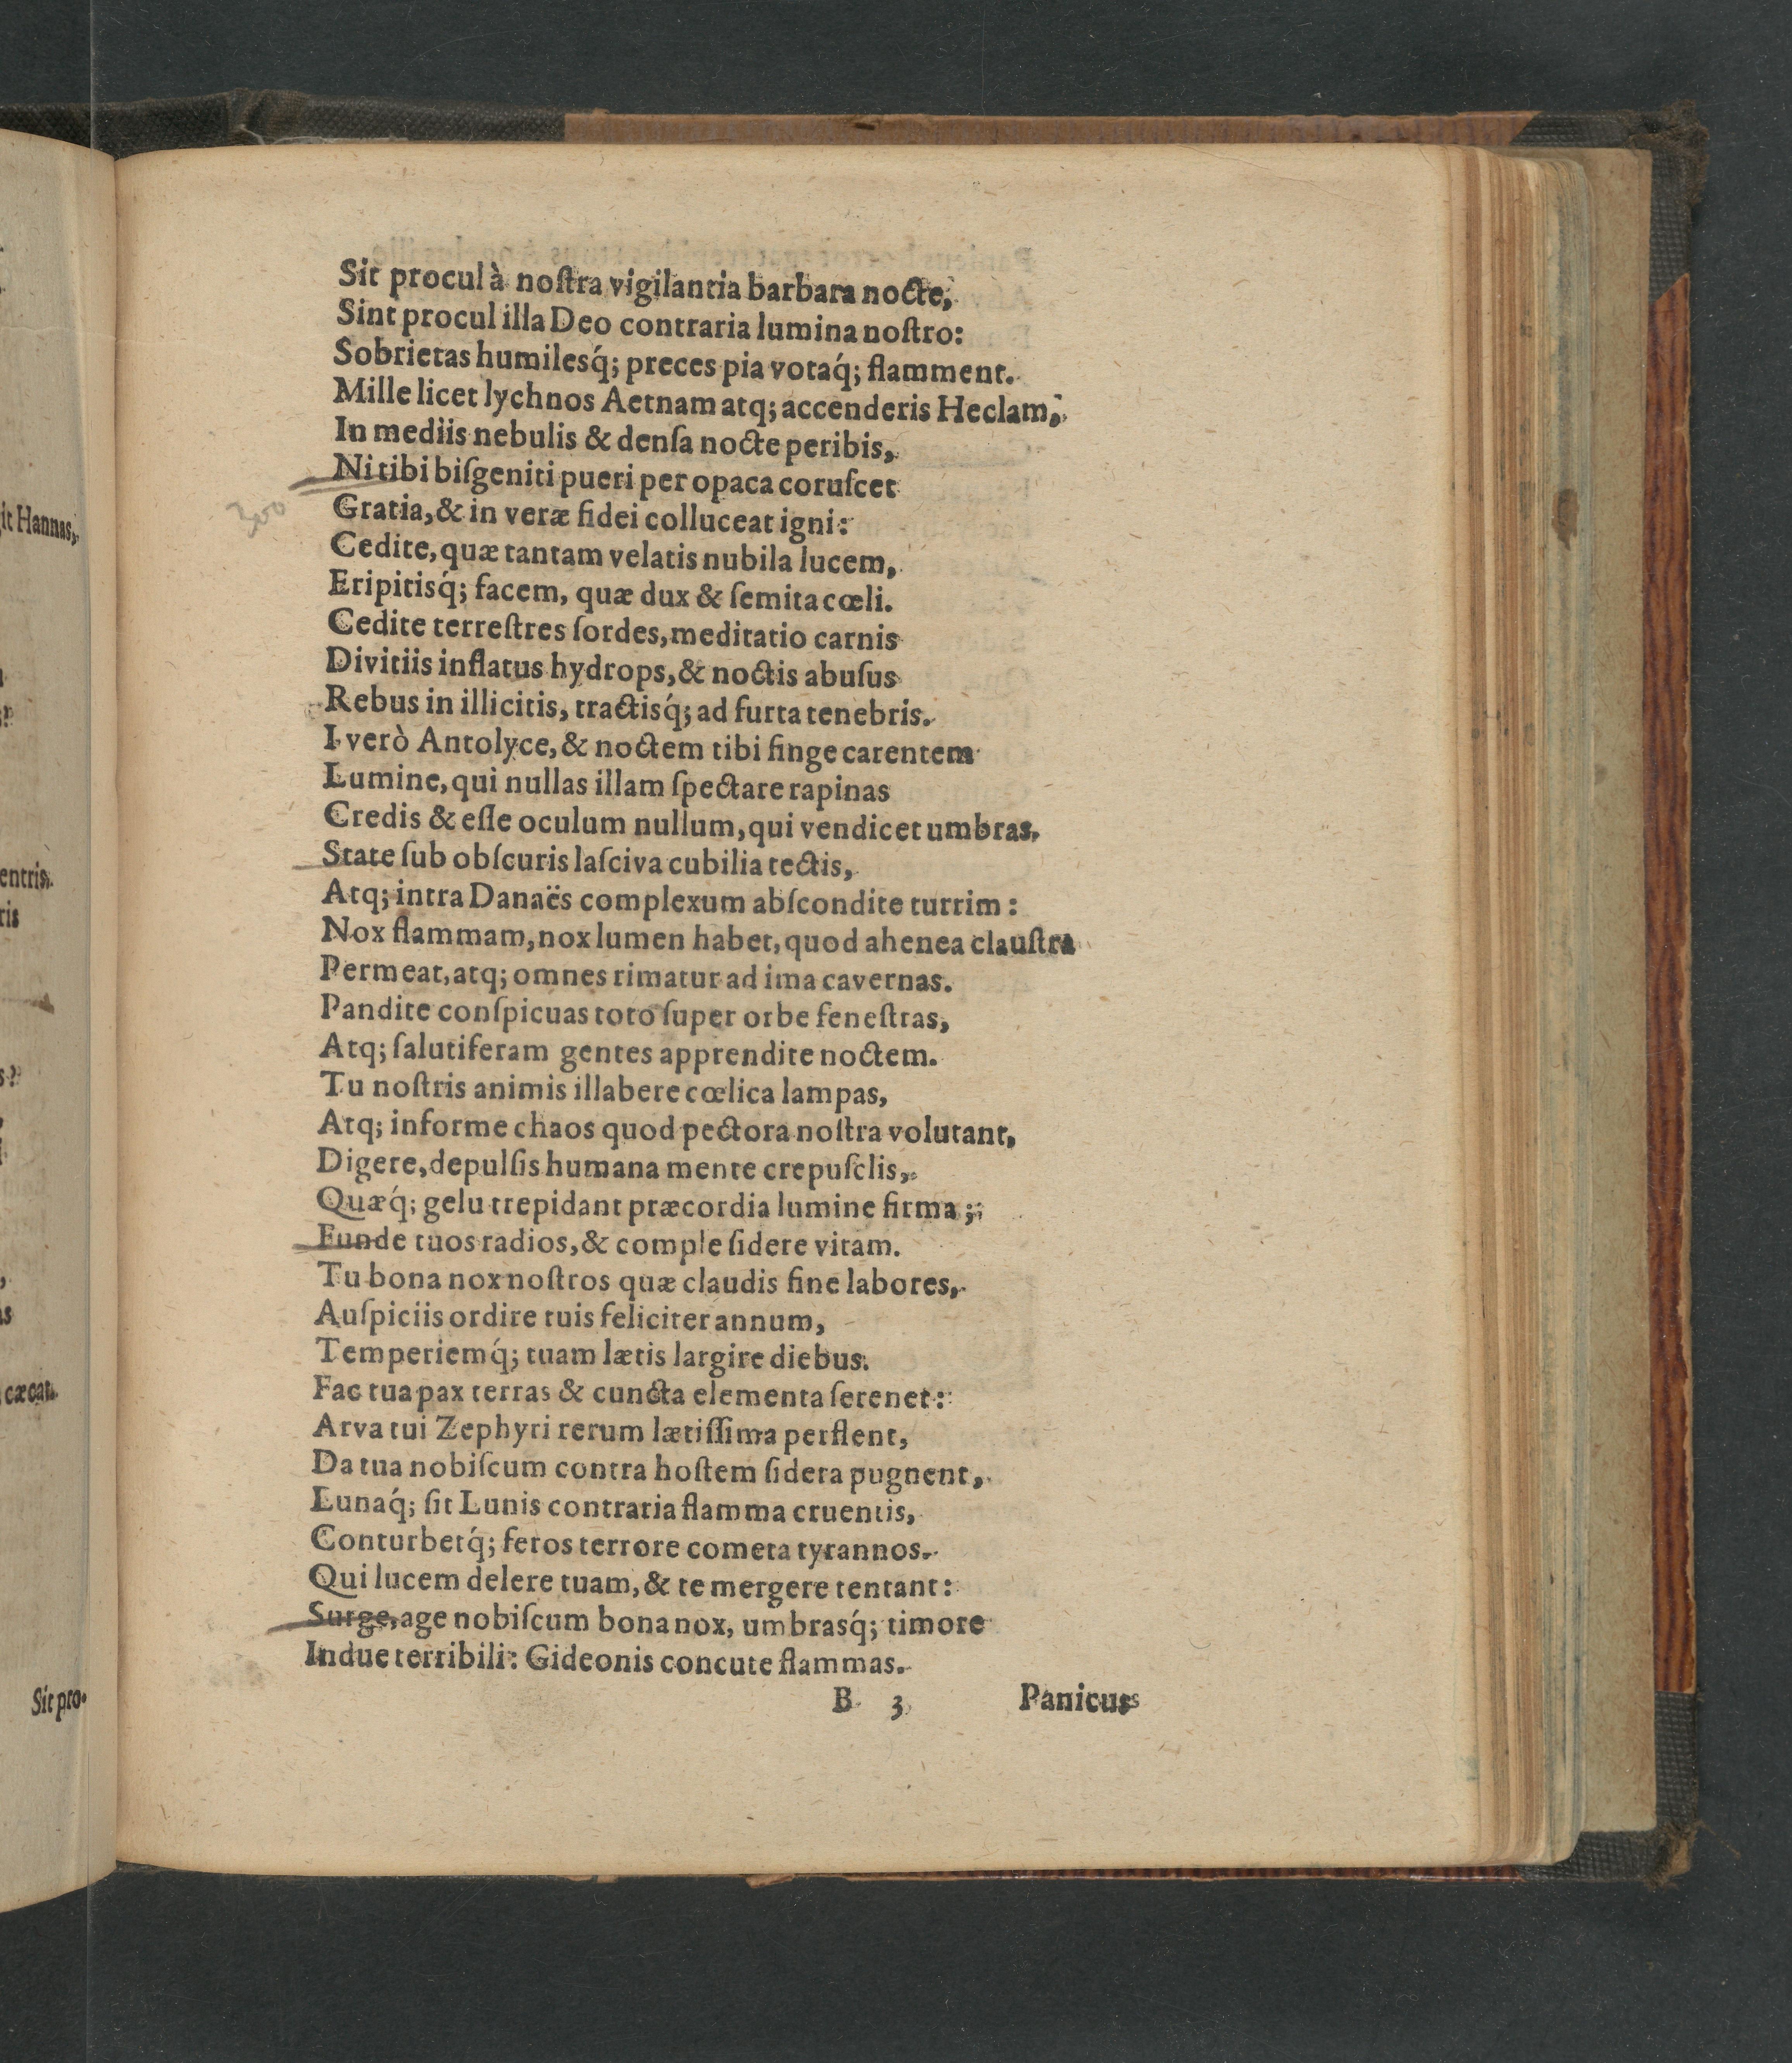 Sit procul à noſtra vigilantia barbara nocte,
Sint procul illa Deo contraria lumina noſtro:
Sobrietas humilesq́; preces pia votaq́; flamment.
Mille licet lychnos Aetnam atq; accenderis Heclam,
In mediis nebulis & denſa nocte peribis,
Ni tibi biſgeniti pueri per opaca coruſcet
300
Gratia, & in veræ fidei colluceat igni:
Cedite, quæ tantam velatis nubila lucem,
Eripitisq́; facem, quæ dux & ſemita cœli.
Cedite terreſtres ſordes, meditatio carnis
Divitiis inflatus hydrops, & noctis abuſus
Rebus in illicitis, tractisq́; ad furta tenebris.
I verò Antolyce, & noctem tibi finge carentem
Lumine, qui nullas illam ſpectare rapinas
Credis & eſſe oculum nullum, qui vendicet umbras.
State ſub obſcuris laſciva cubilia tectis,
Atq; intra Danaës complexum abſcondite turrim:
Nox flammam, nox lumen habet, quod ahenea clauſtra
Permeat, atq; omnes rimatur ad ima cavernas.
Pandite conſpicuas toto ſuper orbe feneſtras,
Atq; ſalutiferam gentes apprendite noctem.
Tu noſtris animis illabere cœlica lampas,
Atq; informe chaos quod pectora noſtra volutant,
Digere, depulſis humana mente crepuſclis,
Quæq́; gelu trepidant præcordia lumine firma;
Funde tuos radios, & comple ſidere vitam.
Tu bona nox noſtros quæ claudis fine labores,
Auſpiciis ordire tuis feliciter annum,
Temperiemq́; tuam lætis largire diebus.
Fac tua pax terras & cuncta elementa ſerenet:
Arva tui Zephyri rerum lætiſſima perflent,
Da tua nobiſcum contra hoſtem ſidera pugnent,
Lunaq́; ſit Lunis contraria flamma cruentis,
Conturbetq́; feros terrore cometa tyrannos.
Qui lucem delere tuam, & te mergere tentant:
Surge, age nobiſcum bona nox, umbrasq́; timore
Indue terribili: Gideonis concute flammas.
B 3 Panicus
it Hannas,
entris
ris
s?
cæcat
Sit pro-